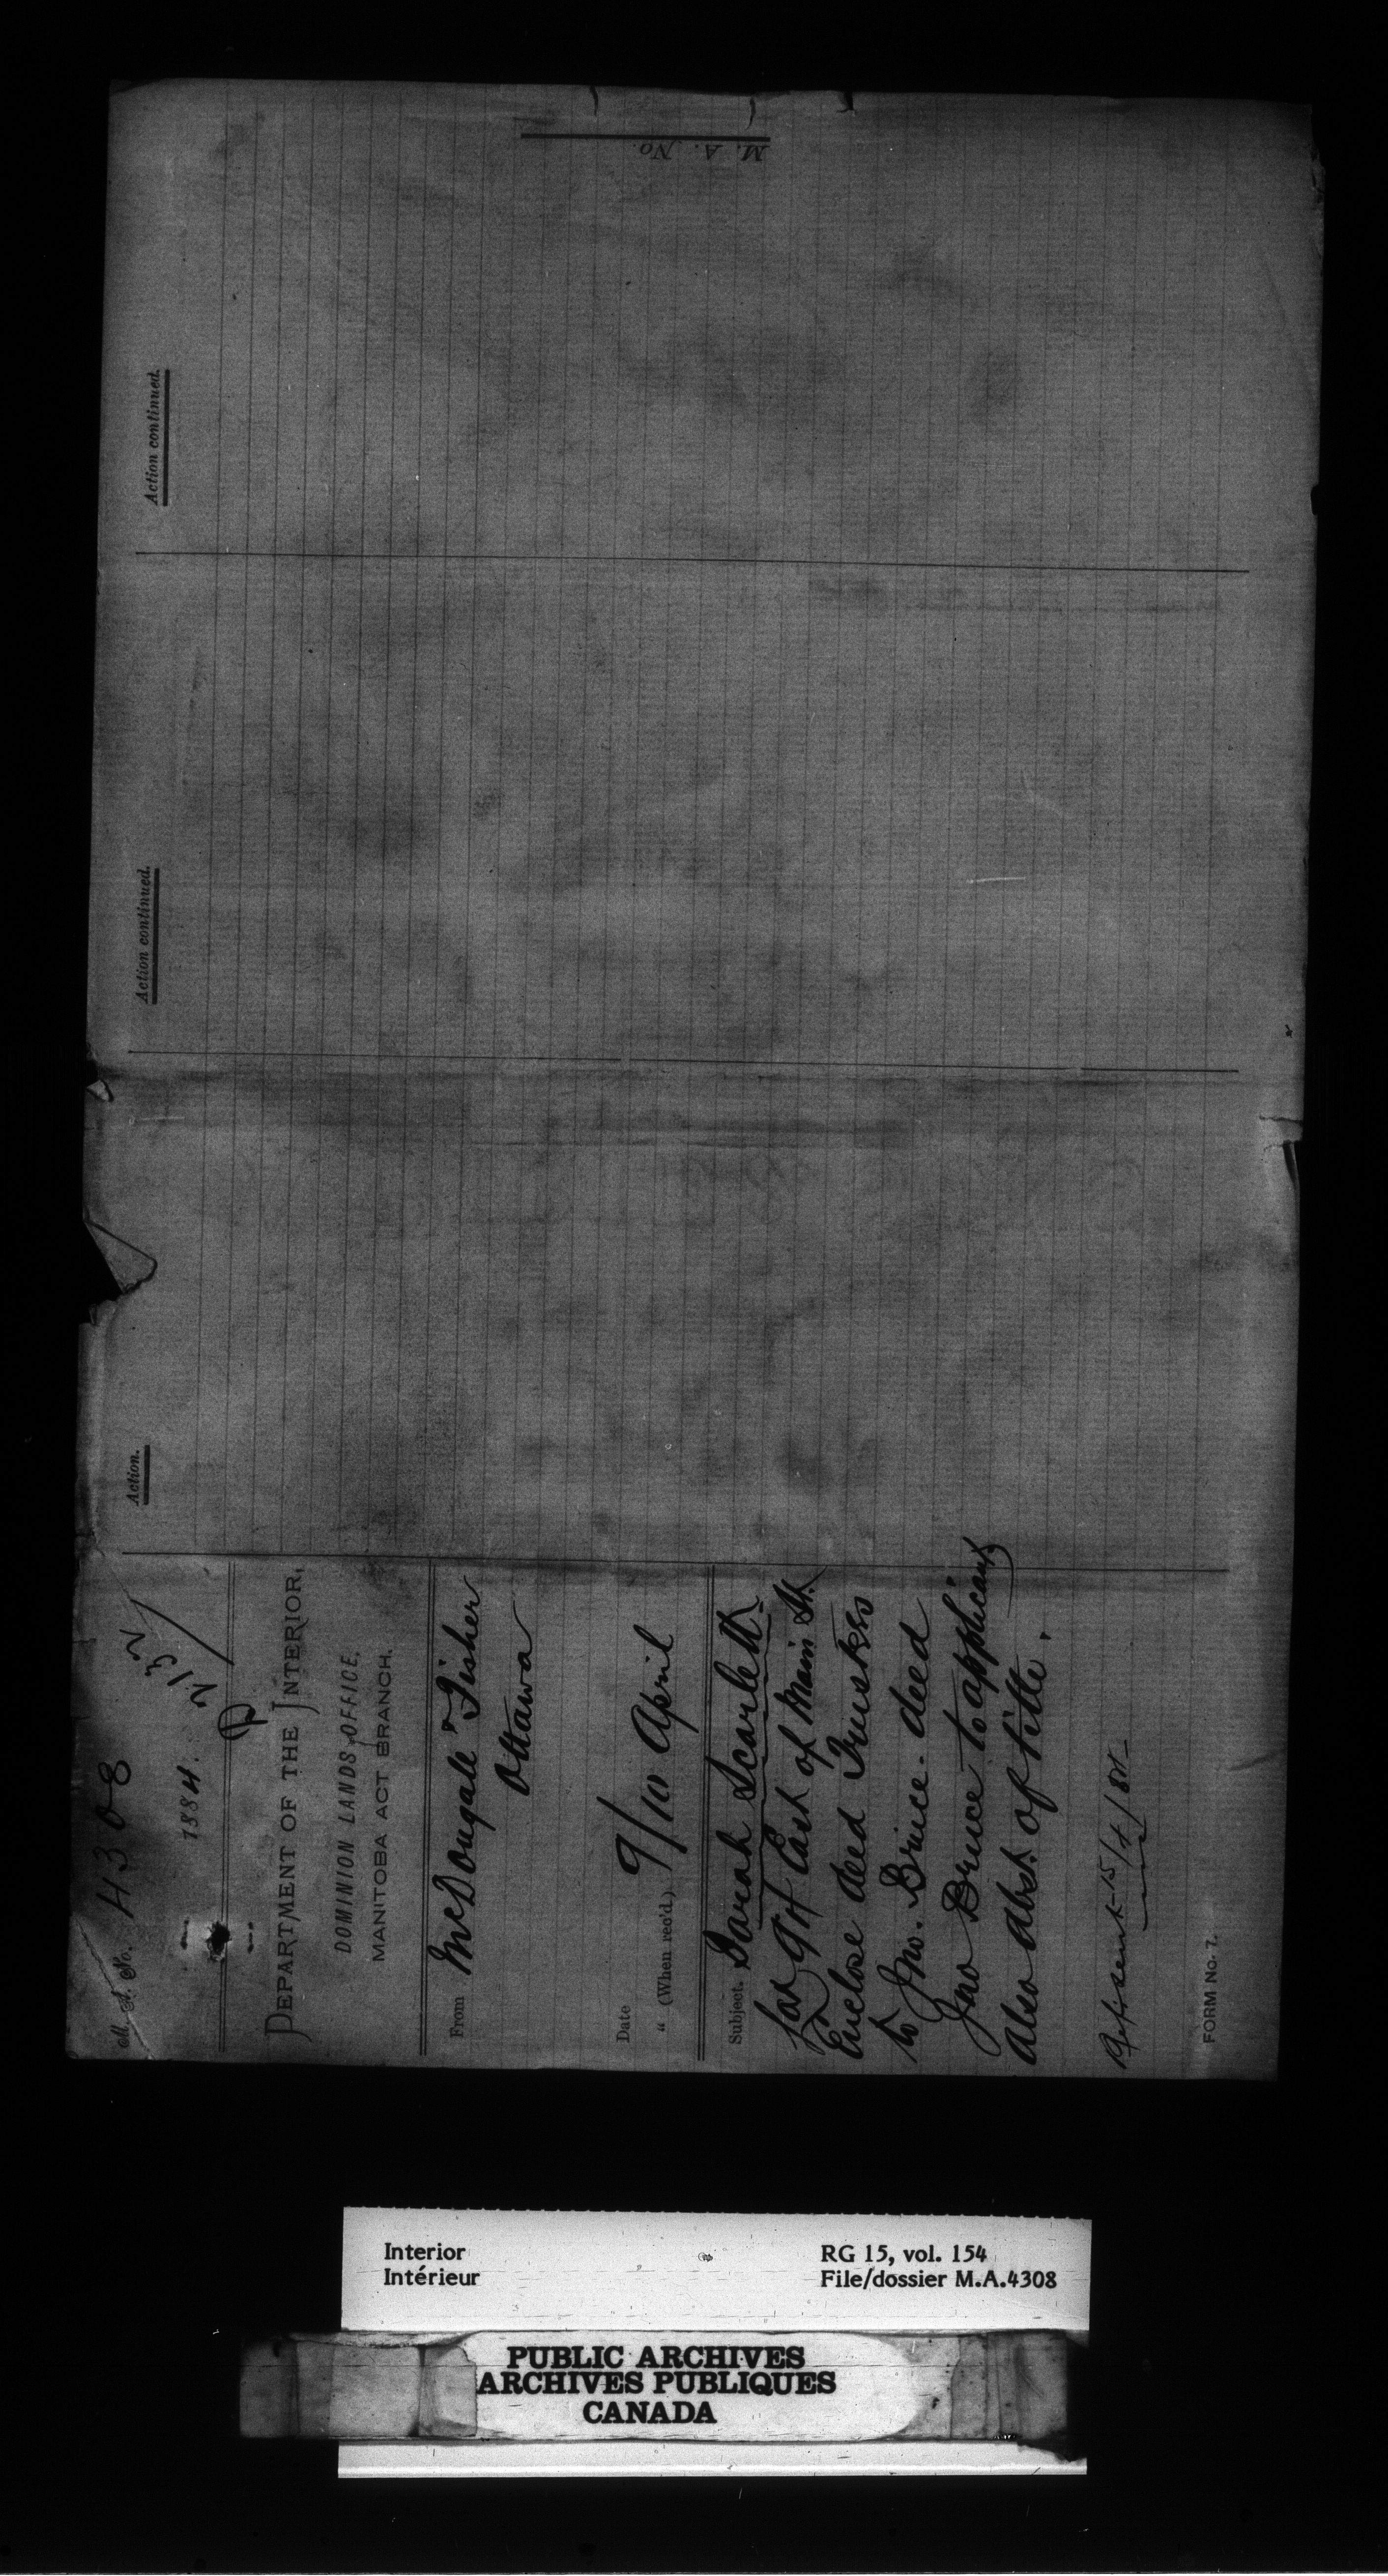 M. A. No. 4308
1884.
DEPARTMENT OF THE INTERIOR,
DOMINION LANDS OFFICE,
MANITOBA ACT BRANCH.
From McDougall & Fisher
Ottawa
Date
" (When rec'd.) 9/10 April
Subject. Sarah Scarlett
for 94 East of Main St.
Enclose deed Trustees
to Jno. Bruce - deed
Jno Bruce to applicant
also abst. of title.
15/4/84
FORM No. 7.
Action.
Action continued.
Action continued.
M. A. No.
Interior
Intérieur
RG 15, vol. 154
File/dossier M.A.4308
PUBLIC ARCHIVES
ARCHIVES PUBLIQUES
CANADA